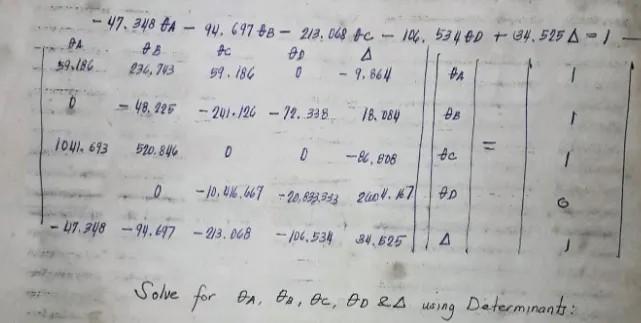 - 47.348 θA - 94.697 θB - 213.068 θC - 106.534 θD + 34.525 Δ = 1
θA θB θC θD Δ
59.186 236.743 59.186 0 - 9.864 θA 1
0 - 48.225 - 241.126 - 72.338 18.084 θB 1
1041.693 520.846 0 0 - 86.808 θC = 1
0 - 10,416.667 - 20,833.333 2604.167 θD 0
- 47.348 - 94.697 - 213.068 - 106.534 34.525 Δ 1
Solve for θA, θB, θC, θD & Δ using Determinants: